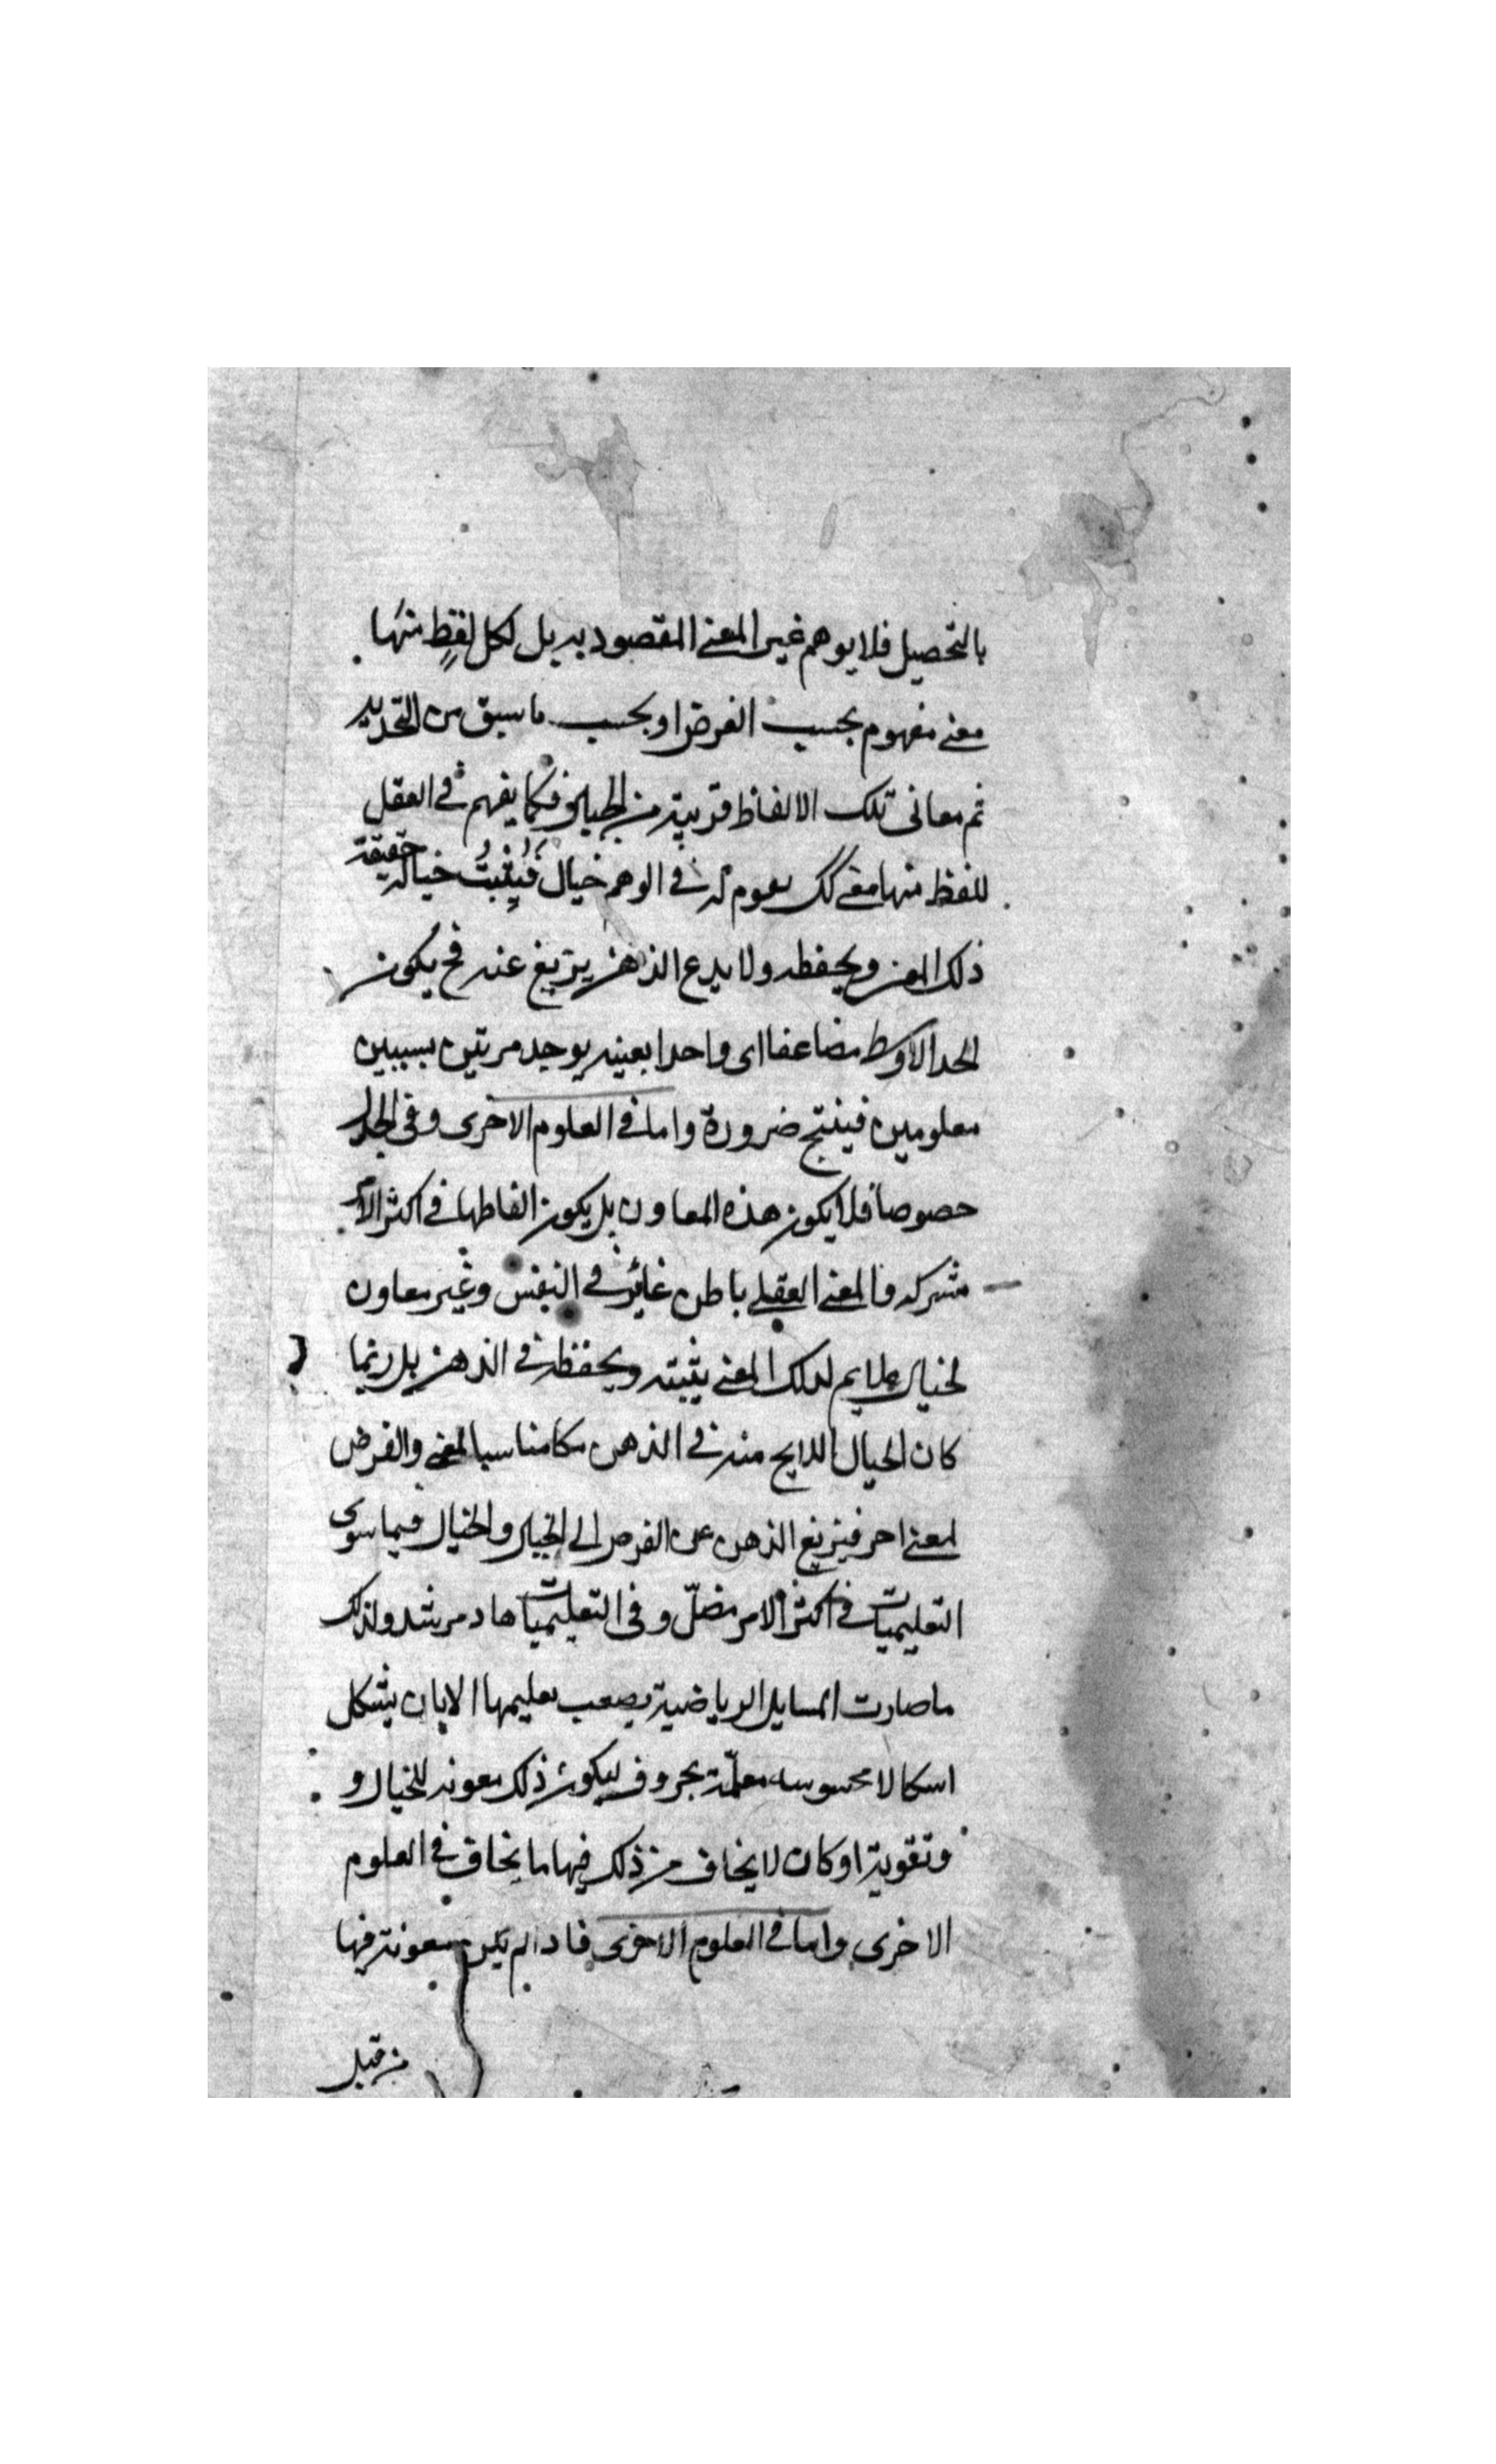 بالتحصيل فلا يوهم غير المعنى المقصود به بل لكل لفظٍ منها
معنى مفهوم بحسب الغرض او بحسب ما سبق من التحديد
ثم معانى تلك الالفاظ قريبة من الخيال فكما يفهم فى العقل
للفظ منها معنى كك يقوم له فى الوهم خيال فيُثبتُ خياله حقيقة
ذلك المعنى ويحفظه ولا يدع الذهن يزيغ عنه فح يكون
الحد الاوسط مضاعفا اى واحدا بعينه يوجد مرتين بسببين
معلومين فينتج ضرورة واما فى العلوم الاخرى وفى الجدل
خصوصا فلا يكون هذه المعاون بل يكون الفاظها فى اكثر الامر
مشتركه فالمعنى العقلى باطن غائر فى النفس وغير معاون
لخيال ملايم لذلك المعنى يثبته ويحفظه فى الذهن بل ربما
كان الخيال اللايح منه فى الذهن مناسبا لمعنى والغرض
لمعنى اخر فيزيغ الذهن عن الغرض الى الخيال والخيال فيما سوى
التعليميات فى اكثر الامر مضلّ وفى التعليميات هاد مرشد ولذلك
ما صارت المسايل الرياضية يصعب تعليمها الا بان يشكل
اشكالا محسوسه معلّمة بحروف ليكون ذلك معونه للخيال و
وتقوية اوكان لا يخاف من ذلك فيها ما يخاف فى العلوم
الاخرى واما فى العلوم الاخرى فاد لم يكن معونته فيها
من قبل